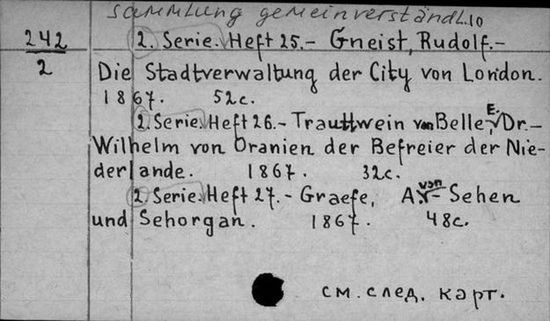 Sammlung gemeinverständl.10
242
2
2. Serie. Heft 25.- Gneist, Rudolf.-
Die Stadtverwaltung der City von London.
1867. 52c.
2. Serie. Heft 26.- Trauttwein von Belle, E. Dr.-
Wilhelm von Oranien der Befreier der Nie-
derlande. 1867. 32c.
2. Serie. Heft 27.- Graefe, A. von - Sehen
und Sehorgan. 1867. 48c.
см. след. карт.